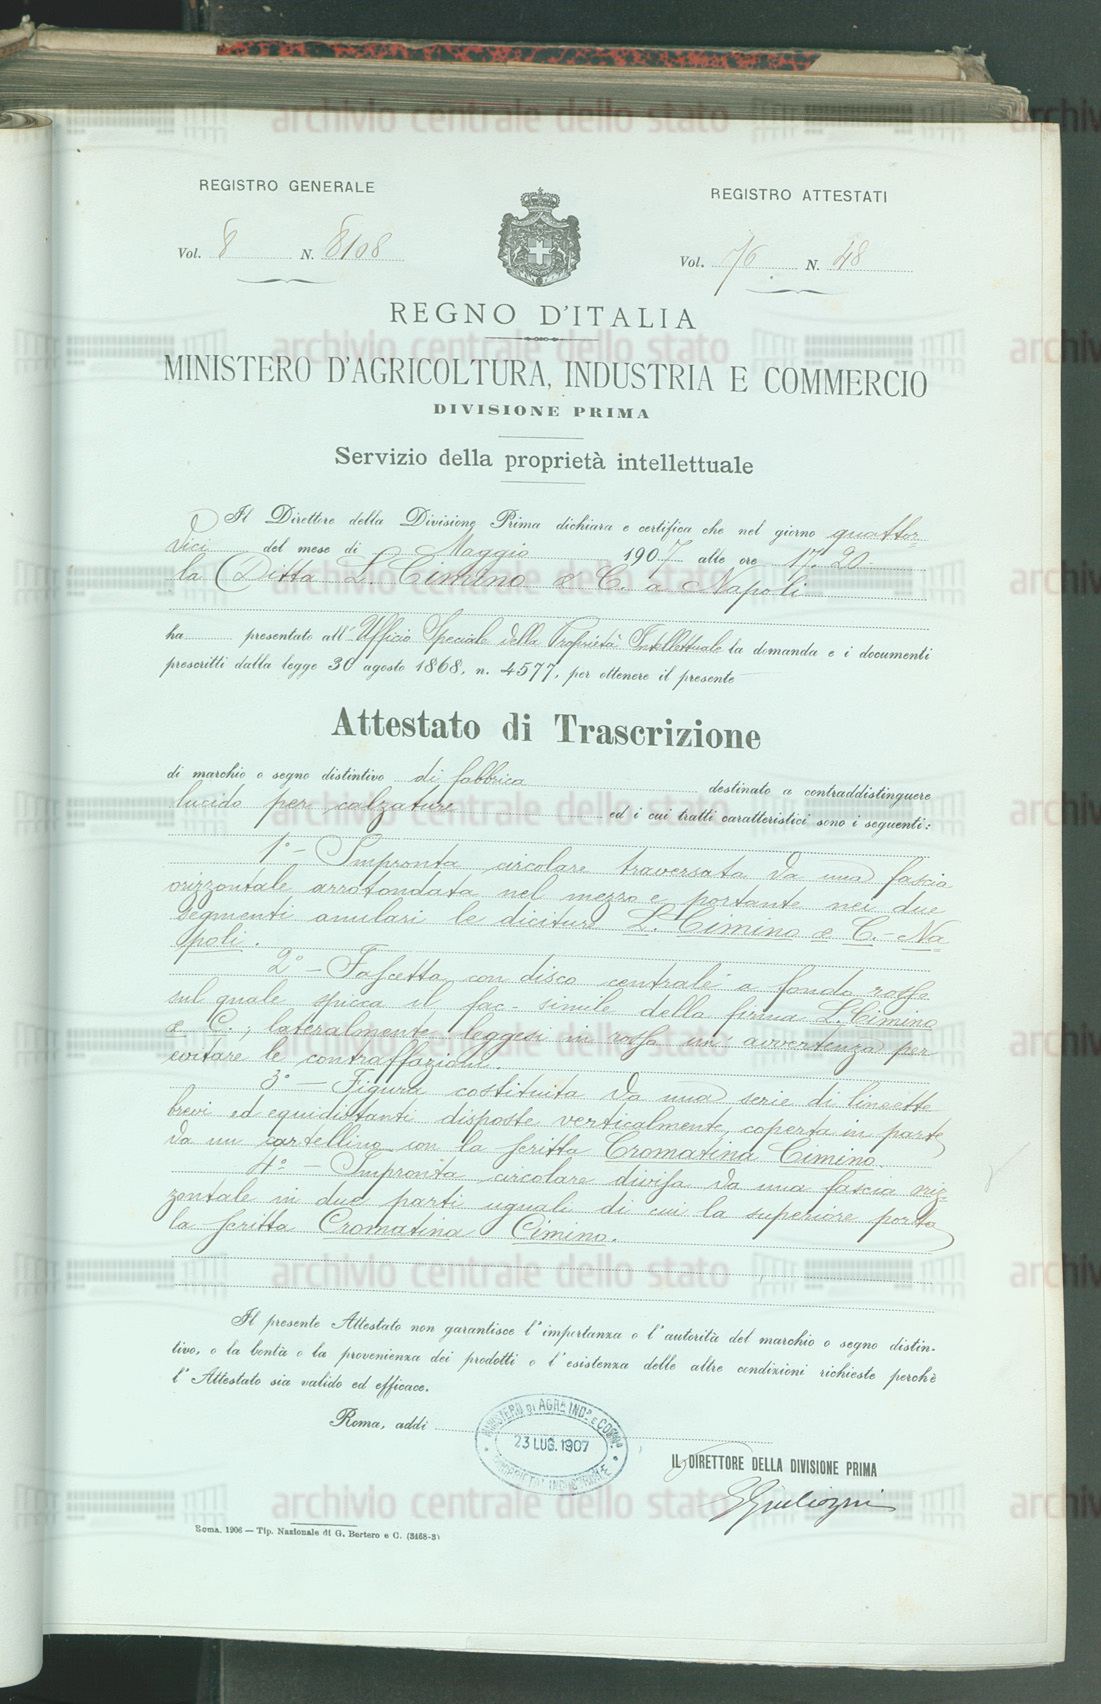 REGISTRO GENERALE
REGISTRO ATTESTATI
Vol. 8 N. 8108
Vol. 76 N. 48
REGNO D'ITALIA
MINISTERO D'AGRICOLTURA, INDUSTRIA E COMMERCIO
DIVISIONE PRIMA
Servizio della proprietà intellettuale
Il Direttore della Divisione Prima dichiara e certifica che nel giorno quattor-
dici del mese di Maggio 1907 alle ore 17.20
la Ditta L. Cimino & C. a Napoli
ha presentato all'Ufficio Speciale della Proprietà Intellettuale la domanda e i documenti
prescritti dalla legge 30 agosto 1868, n. 4577, per ottenere il presente
Attestato di Trascrizione
di marchio o segno distintivo di fabbrica destinato a contraddistinguere
lucido per calzature ed i cui tratti caratteristici sono i seguenti:
1° - Impronta circolare traversata da una fascia
orizzontale arrotondata nel mezzo e portante nei due
segmenti anulari le diciture L. Cimino & C. - Na
poli.
2° - Fascetta con disco centrale a fondo rosso
sul quale spicca il fac-simile della firma L. Cimino
& C.; lateralmente leggesi in rosso un'avvertenza per
evitare le contraffazioni.
3° - Figura costituita da una serie di lineette
brevi ed equidistanti disposte verticalmente, coperta in parte
da un cartellino con la scritta Cromatina Cimino.
4° - Impronta circolare divisa da una fascia oriz-
zontale in due parti uguali di cui la superiore porta
la scritta Cromatina Cimino.
Il presente Attestato non garantisce l'importanza o l'autorità del marchio o segno distin-
tivo, o la bontà o la provenienza dei prodotti o l'esistenza delle altre condizioni richieste perchè
l'Attestato sia valido ed efficace.
Roma, addì
MINISTERO di AGR.E IND.ª e COMM.º
23 LUG. 1907
PROPRIETA' INDUSTRIALE
IL DIRETTORE DELLA DIVISIONE PRIMA
Roma. 1906 — Tip. Nazionale di G. Bertero e C. (3468-3)
archivio centrale dello stato